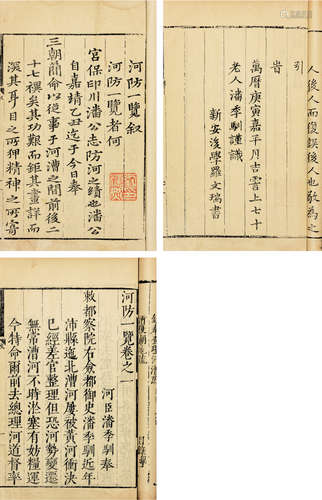 河防一覽敘
河防一覽者何
宮保印川潘公志防河之績也潘公
自嘉靖乙丑迄于今日奉
三朝簡命以從事于河漕之間前後二
十七禩矣其功艱而鉅其畫詳而
深其耳目之所狎精神之所寄
人後人而復誤後人也敬為之
引
告
萬曆庚寅嘉平月吉雲上七十
老人潘季馴謹識
新安後學羅文瑞書
河防一覽卷之一
河臣潘季馴奉
敕都察院右僉都御史潘季馴近年
沛縣迤北漕河屢被黃河衝決
已經差官整理但恐河勢變遷
無常漕河不時淤塞有妨糧運
今特命爾前去總理河道督率